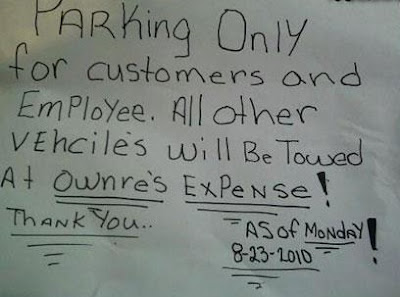 PARKing Only
for customers and
EmPloyee. All other
VEhcile's will Be Towed
At Ownre's EXPENSE!
THANK You..
AS of MONDAY!
8-23-2010